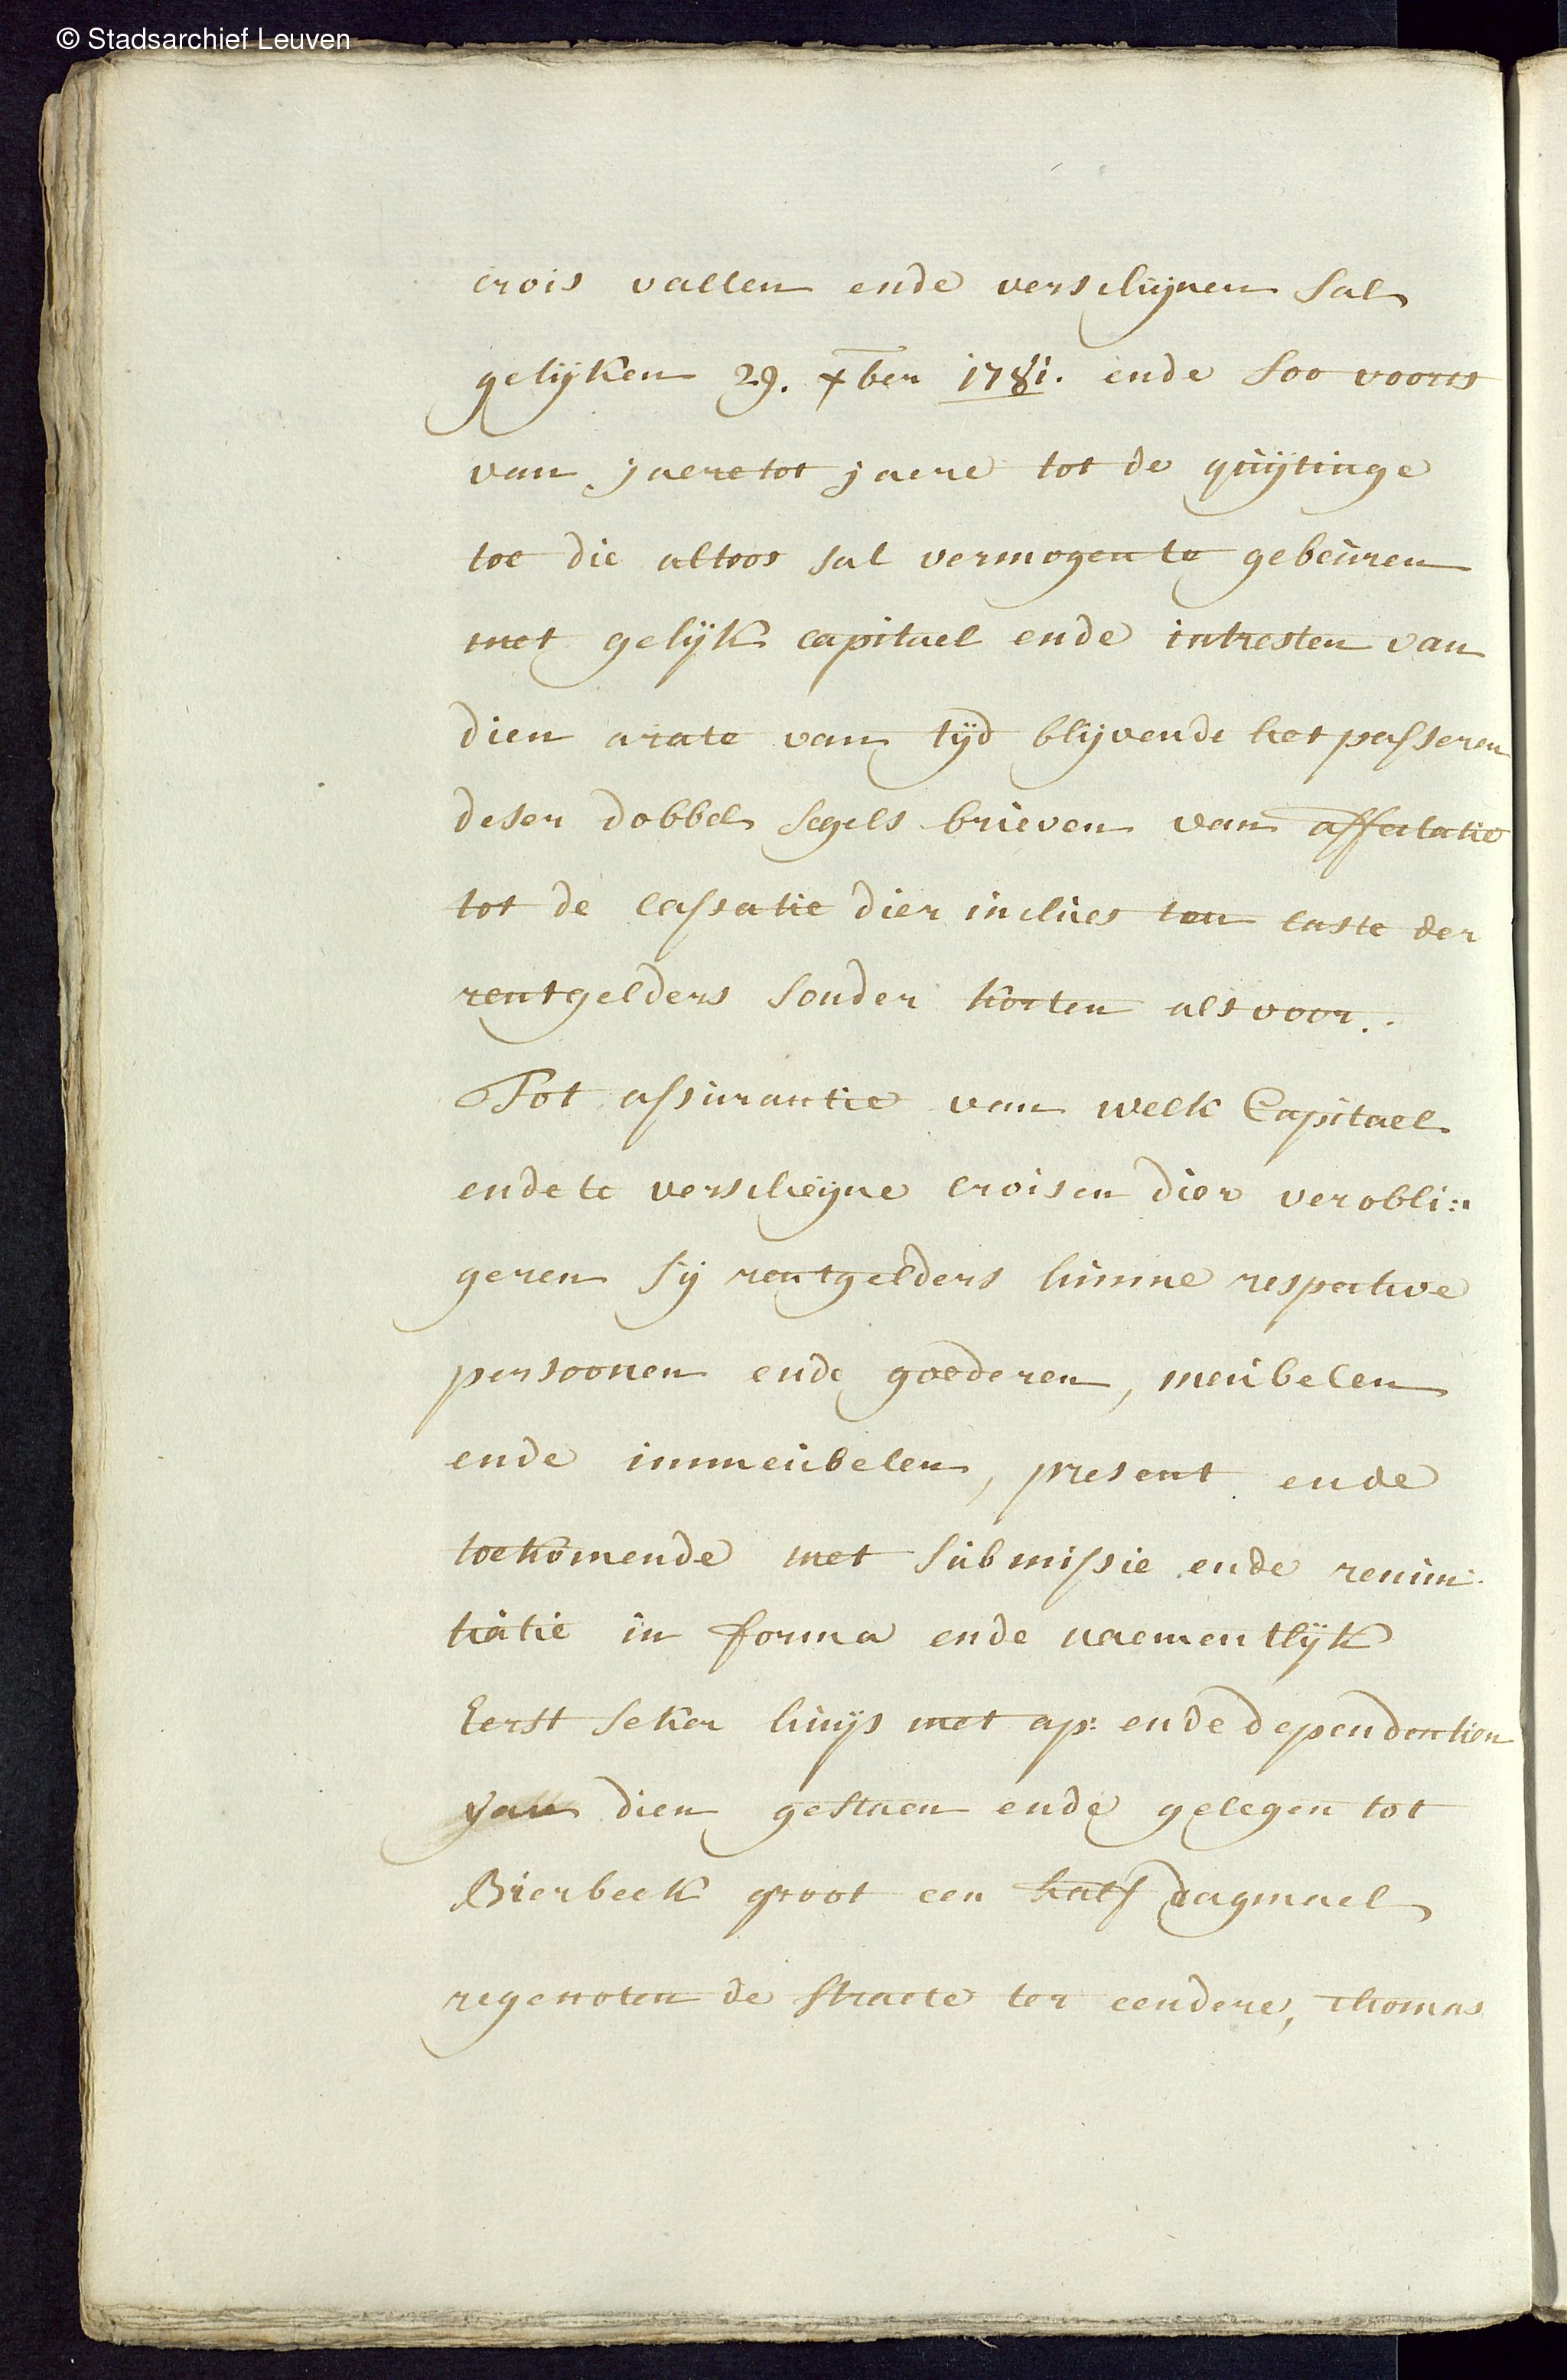 © Stadsarchief Leuven
crois vallen ende verschijnen sal
gelijken 29. xber 1781. ende soo voorts
van jaere tot jaere tot de quijtinge
toe die altoos sal vermogen te gebeuren
met gelijk capitael ende intresten van
dien a rate van tijd blijvende het passeren
deser dobbel segels brieven van affectatie
tot de cassatie dier inclues ten laste der
rentgelders sonder korten als voor..
Tot assurantie van welk Capitael
ende te verscheijne croisen dier verobli:
geren sij rentgelders hunne respective
persoonen ende goederen, meubelen
ende immeubelen, present ende
toekomende met submissie ende renun:
tiatie in forma ende naementlijk
Eerst seker huijs met ap: ende dependentien
van dien gestaen ende gelegen tot
Bierbeek groot een half dagmael
regenoten de straete ter eendere, Thomas